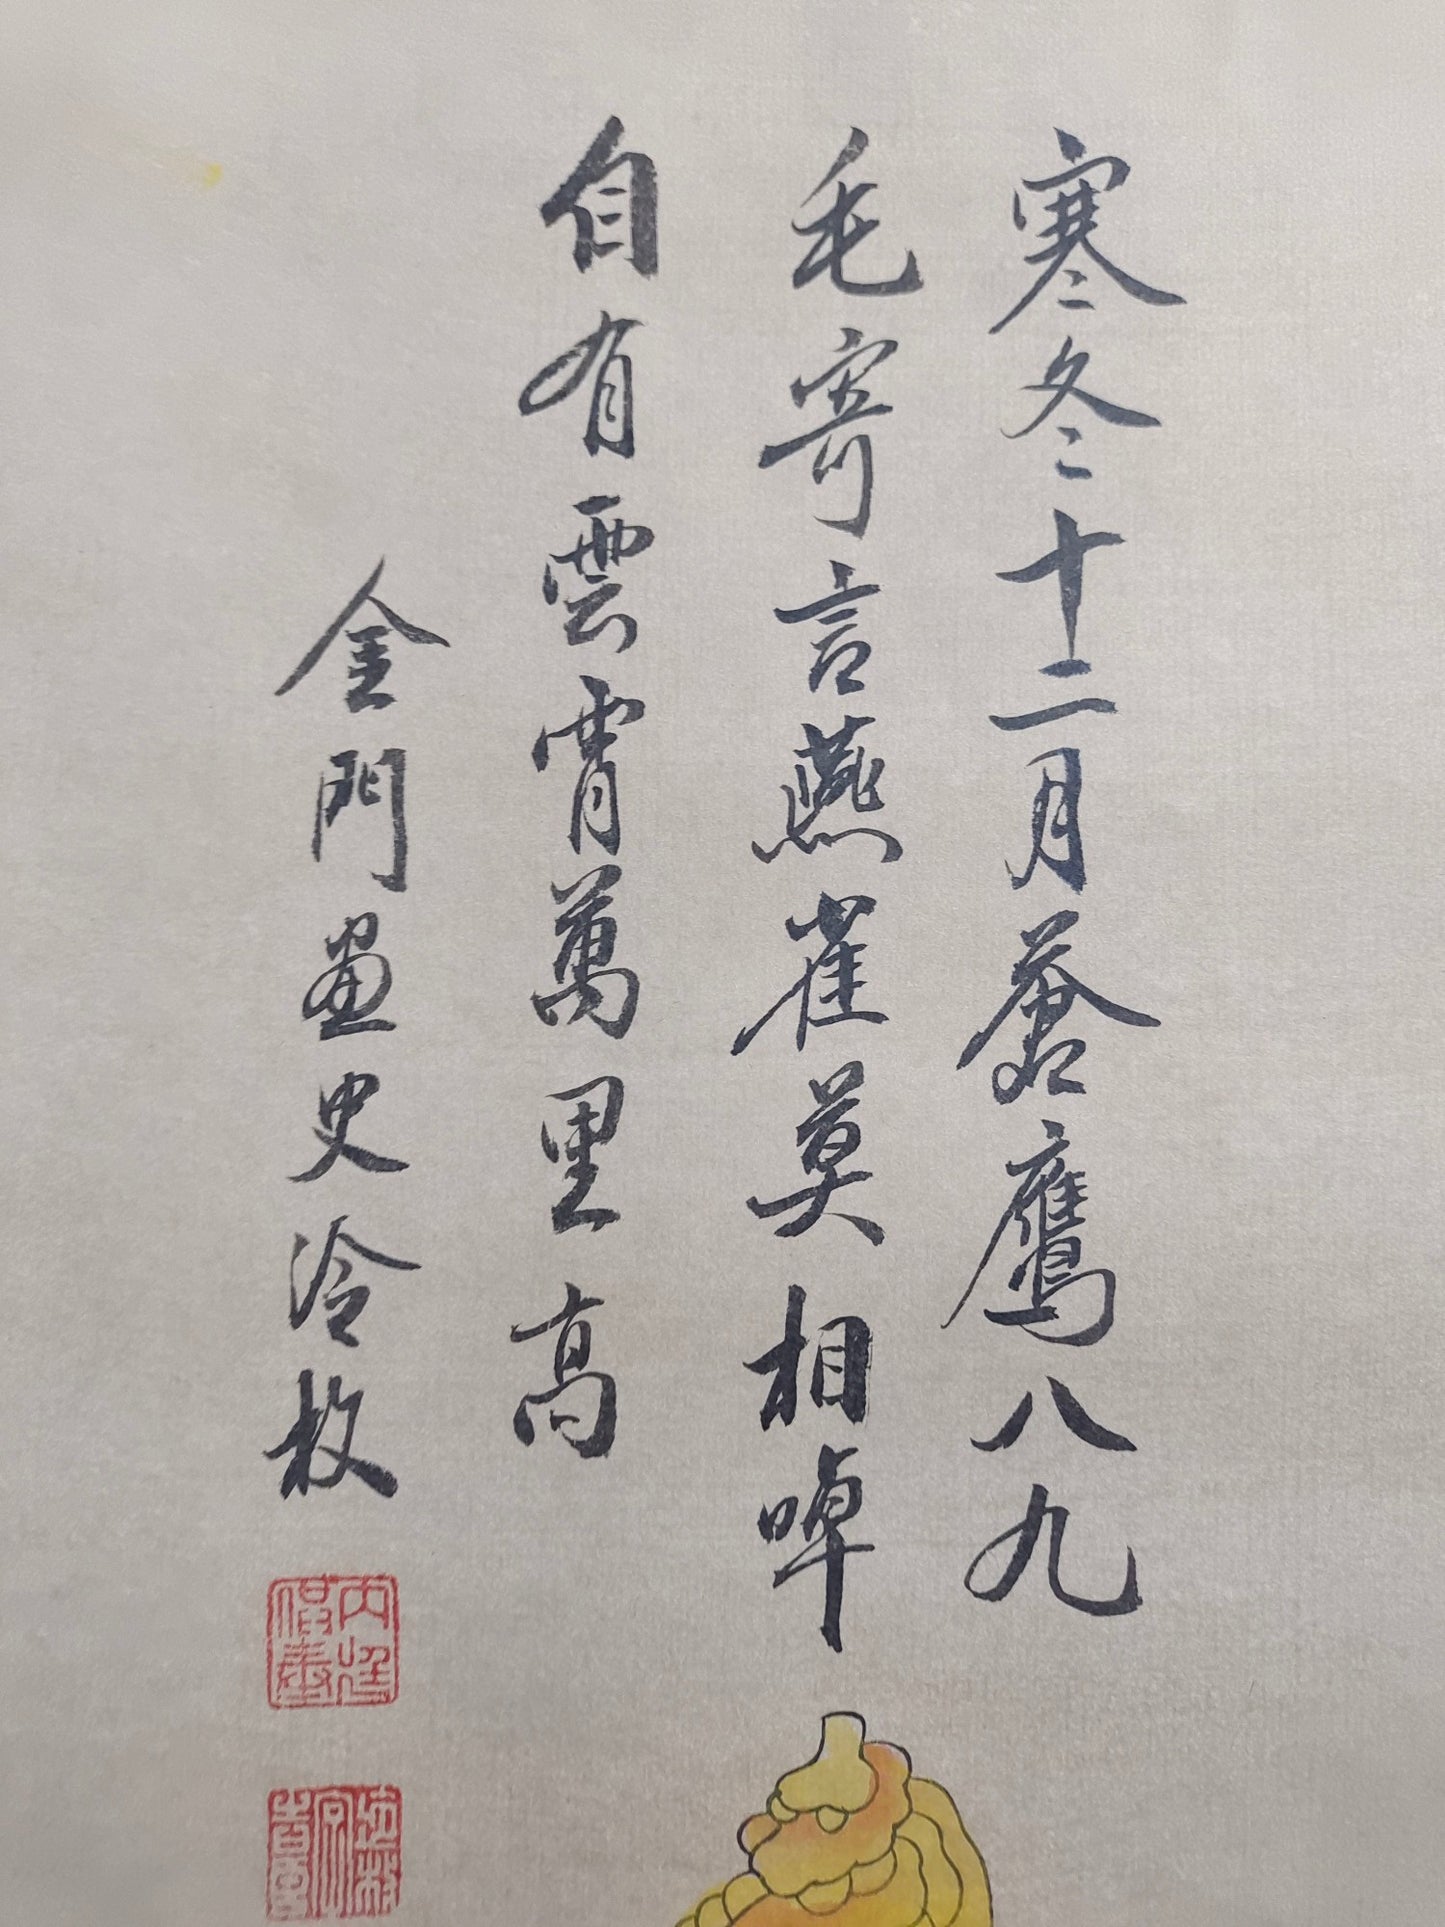 寒冬十二月蒼鷹八九
毛寄言燕雀莫相啅
自有雲霄萬里高
金門畫史冷枚